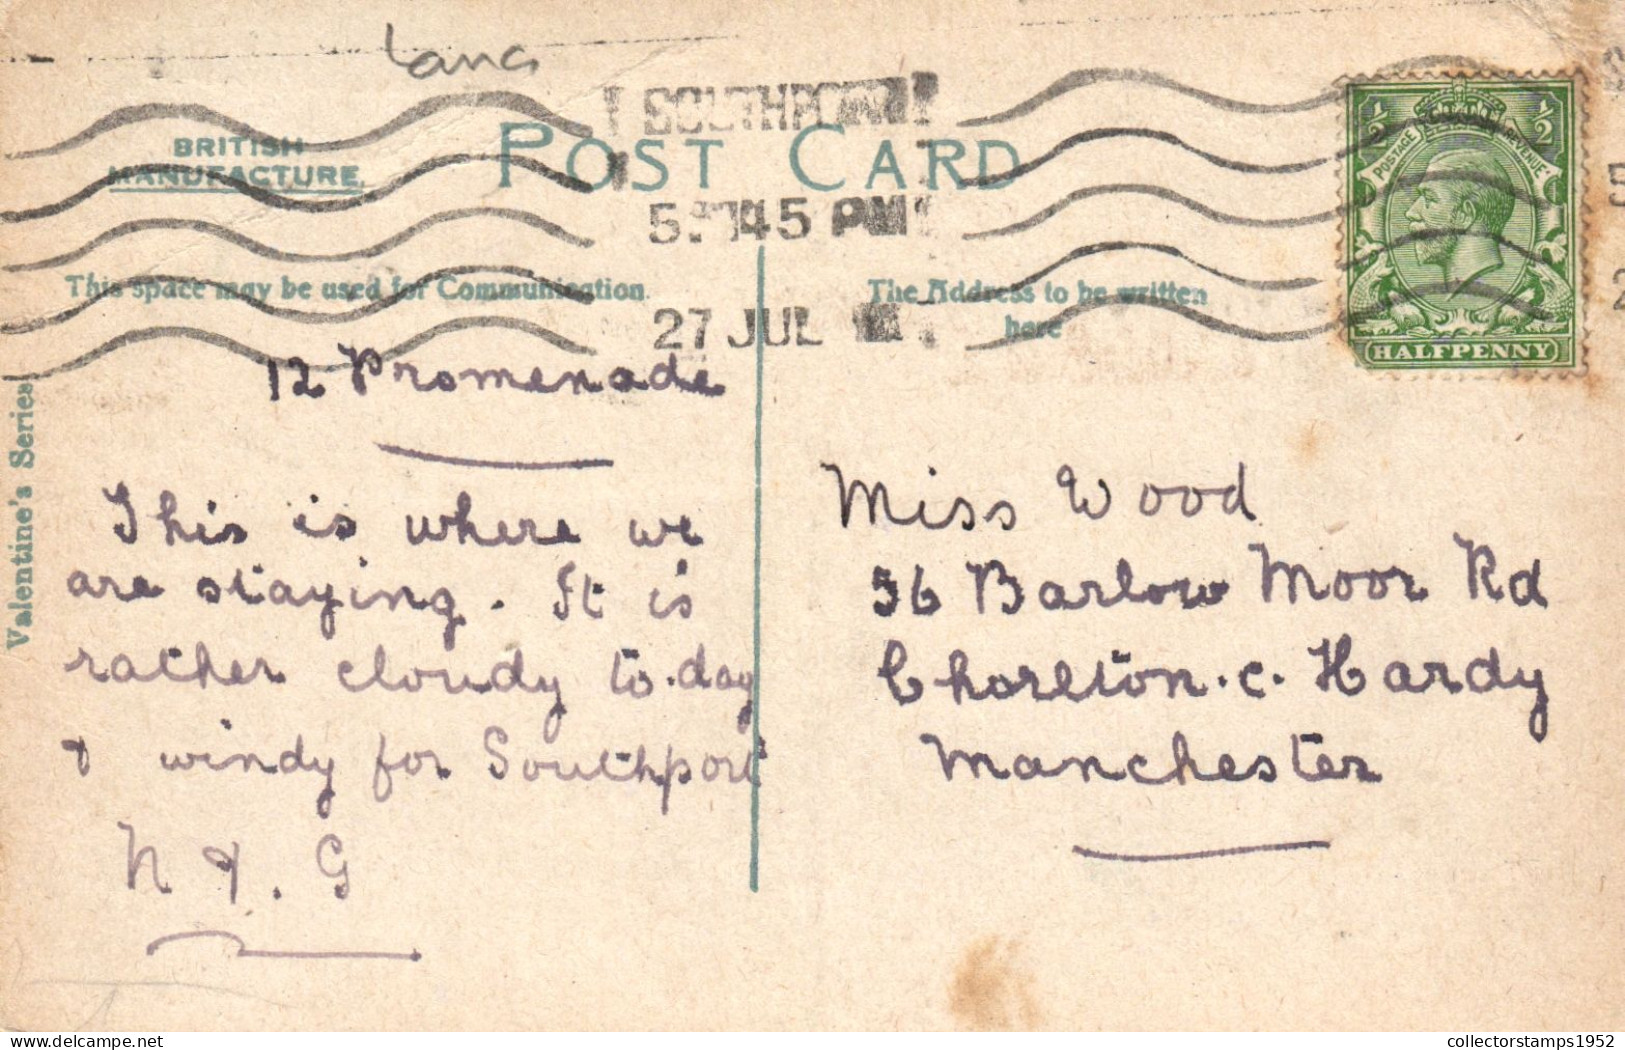 Lancs
BRITISH
MANUFACTURE.
POST CARD
SOUTHPORT
5. 45 PM
27 JUL
POSTAGE REVENUE
½ ½
HALFPENNY
This space may be used for Communication.
The Address to be written
here
Valentine's Series
12 Promenade
This is where we
are staying. It is
rather cloudy to-day
& windy for Southport
N & G
Miss Wood
56 Barlow Moor Rd
Chorlton. c. Hardy
Manchester
collectorstamps1952